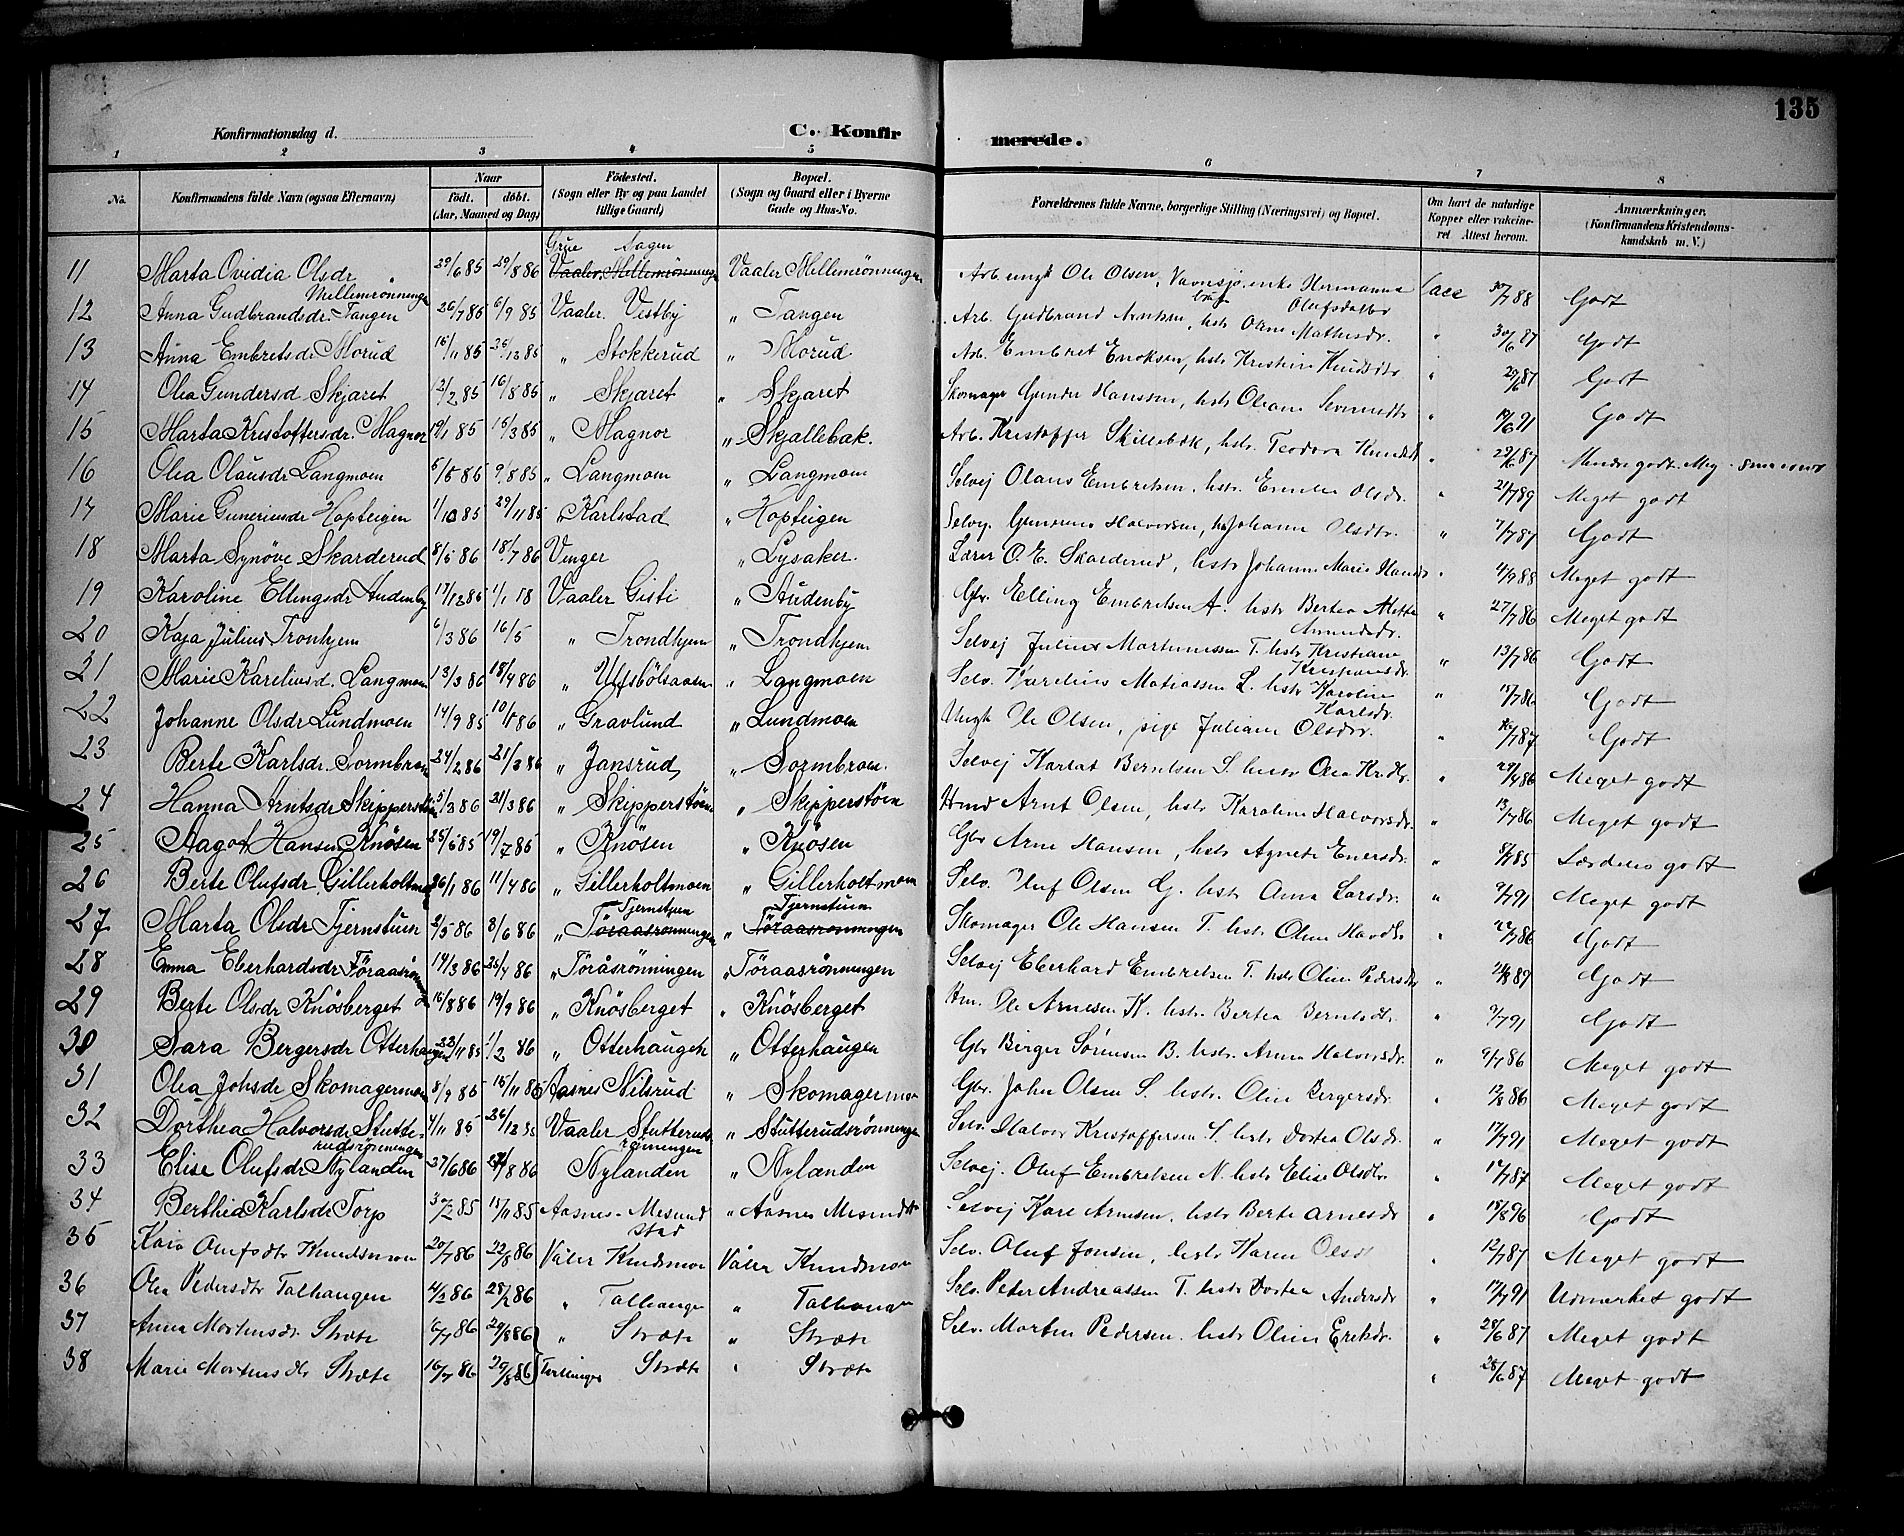 135
Konfirmationsdag d.
C. Konfirmerede.
1 2 3 4 5 6 7 8
No. Konfirmandens fulde Navn (ogsaa Efternavn) Naar födt. döbt. (Aar, Maaned og Dag) Födested. (Sogn eller By og paa Landet tillige Gaard) Bopæl. (Sogn og Gaard eller i Byerne Gade og Hus-No. Forældrenes fulde Navne, borgerlige Stilling (Næringsvei) og Bopæl. Om havt de naturlige Kopper eller vakcineret Attest herom. Anmærkninger. (Konfirmandens Kristendomskundskab m. V.)
Grue Aagen
11 Marta Ovidia Olsdr. 29/6 85 29/8 86 Vaaler, Mellemrönningen Vaaler Mellemrönningen Arb. ungk Ole Olsen, enke Hermanna Olufsdatter 88 Godt
Mellemrönningen
12 Anna Gudbrandsdr. Tangen 26/7 85 6/9 85 Vaaler. Vestby " Tangen Arb. Gudbrand hstr. Oline Mathisdr. " 30/6 87 Godt
13 Anna Embretsdr Morud 16/11 85 26/12 85 " Stokkerud " Morud Arb. Embret Eriksen, hstr Kristine " 29/6 87 Godt
14 Olea Gundersd. Skjaret 12/2 85 16/8 85 " Skjaret " Skjaret Skomager Gunder Hanssen, hstr Oleane " 19/6 91 Godt
15 Marta Kristoffersdr. Magnor 19/1 85 15/3 85 " Magnor " Skjallebak. Arb. Kristoffer Skillebæk, hstr. Teodora " 29/6 87 Mindre godt.
16 Olea Olausdr Langmoen 5/5 85 9/8 85 " Langmoen " Langmoen Selvej Olaus Embretsen, hstr. Olsdr. " 21/7 89 Meget godt
17 Marie Guneriusdr Hopteigen 1/10 85 29/11 85 " Karlstad " Hopteigen Selvej. Gunerius Halvorsen, hstr Johanne Olsdtr. " 7/7 87 Godt
18 Marta Synöve Skarderud 8/5 86 18/7 86 Vinger " Lysaker. Lærer O. E. Skarderud, hstr Johanne Marie " 4/9 88 Meget godt
19 Karoline Ellingsdr Audenby 17/12 85 1/1 Vaaler Gisti " Audenby Gbr. Elling Embretsen A. hstr Bertea Mette Amundsdr. " 27/7 86 Meget godt
20 Kaja Julius Tronhjem 6/3 86 16/5 " Trondhjem " Trondhjem Selvej Julius Martinussen T. hstr Kristiane Kristiansdr. " 13/7 86 Godt
21 Marie Kareliusd. Langmoen 13/3 86 18/4 86 " Ulfsbölsaasen " Langmoen Selv. Karelius Matiassen L. hstr Karoline Karlsdr. " 15/7 86 Godt
22 Johanne Olsdr Lundmoen 14/9 85 10/1 86 " Gravlund " Lundmoen Ungk Ole Olsen, pige Juliane Olsdtr. " 87 Godt
23 Berte Karlsdr. Sormbroen 24/2 86 21/3 86 " Jansrud " Sormbroen. Selvej Berntsen S. hstr Olea " 29/4 86 Meget godt
24 Hanna Arntsdr Skipperstöen 5/3 86 21/3 86 " Skipperstöen " Skipperstöen Arnt Olsen, hstr Karoline Halvorsdr. " 13/7 86 Meget godt
25 Aagot Hansen Knösen 25/5 85 19/7 85 " Knösen " Knösen Gbr Arne Hansen, hstr Agnete Enersdr. " 85 Særdeles godt
26 Berte Olufsdr. Gillerholtmoen 26/1 86 11/4 86 " Gillerholtmoen " Gillerholtmoen Selv. Oluf Olsen G. hstr Anna Larsdr. " 9/7 91 Meget godt
Tjernstuen Tjernstuen
27 Marta Olsdr Tjernstuen 2/5 86 8/6 86 " Töraasrönningen " Töraasrönningen Skomager Ole Hansen T. hstr Oline " 86 Godt
28 Emma Eberhardsdr Föraasrönningen 19/3 86 25/4 86 " Töråsrönningen " Töraasrönningen Selvej Eberhard Embretsen T. hstr Oline Pedersdr " 87 Godt
29 Berte Olsdr Knösberget 15/8 86 19/9 86 " Knösberget " Knösberget Hm. Ole Arnesen K. hstr Bertea Berntsdtr. " 9/7 91 Godt
30 Sara Bergersdr Otterhaugen 22/11 85 1/2 86 " Otterhaugen " Otterhaugen Gbr Birger Sörensen B. hstr. Anne Halvorsdr. " 9/7 86 Meget godt
31 Olea Johsdr Skomagermoen 8/9 85 15/11 85 Aasnes Nilsrud " Skomagermoen Gbr. John Olsen S. hstr Oline Bergersdr " 12/8 86 Meget godt
32 Dorthea Halvorsdr Stutterudsrönningen 4/11 85 26/12 85 Vaaler Stutterudsrönningen " Stutterudsrönningen Selv. Halvor Kristoffersen S. hstr Dortea Olsdr. " 17/7 91 Meget godt
33 Elise Olufsdr Nylanden 27/6 86 /8 86 Nylanden " Nylanden Selvej. Oluf Embretsen N. hstr Elise Olsdtr. " 87 Meget godt
34 Berthea Karlsdr Torp /2 85 15/11 85 Aasnes - Mesundstad " Aasnes Selvej Kare Arnesen. hstr Berte Arnesdr " 18/8 96 Godt
35 Olufsdtr Knudsmoen 20/7 86 22/8 86 Våler Knudsmoen Våler Knudsmoen Selv. Oluf Jonsen, hstr Karen Olsdt " 12/7 87 Meget godt
36 Olea Pedersdtr Talhaugen 4/2 86 28/2 86 " Talhaugen " Talhaugen Selv. Peter Andreassen T. hstr Dortea Andersdr " 17/7 91 Udmærket godt
37 Anna Mortensdr. Stræte 6/7 86 29/8 86 " Stræte " Stræte Selv. Morten Pedersen. hstr Oline Eriksdr. " 28/6 87 Meget godt
38 Marie Mortensdtr Stræte 16/7 86 29/8 86 Tvillinger Stræte " Stræte " 28/6 87 Meget godt